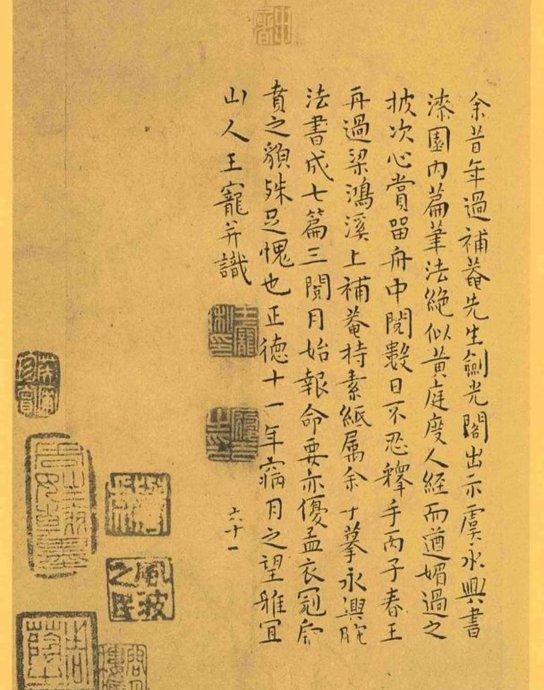 余昔年過補菴先生劍光閣出示虞永興書
漆園內篇筆法絕似黃庭度人經而遒媚過之
披次心賞留舟中閱數日不忍釋手丙子春王
再過梁鴻溪上補菴持素紙属余寸摹永興
法書成七篇三閱月始報命要亦優孟衣冠
賁之貌殊足愧也正德十一年病月之望雅宜
山人王寵并識
六十一
風波之民